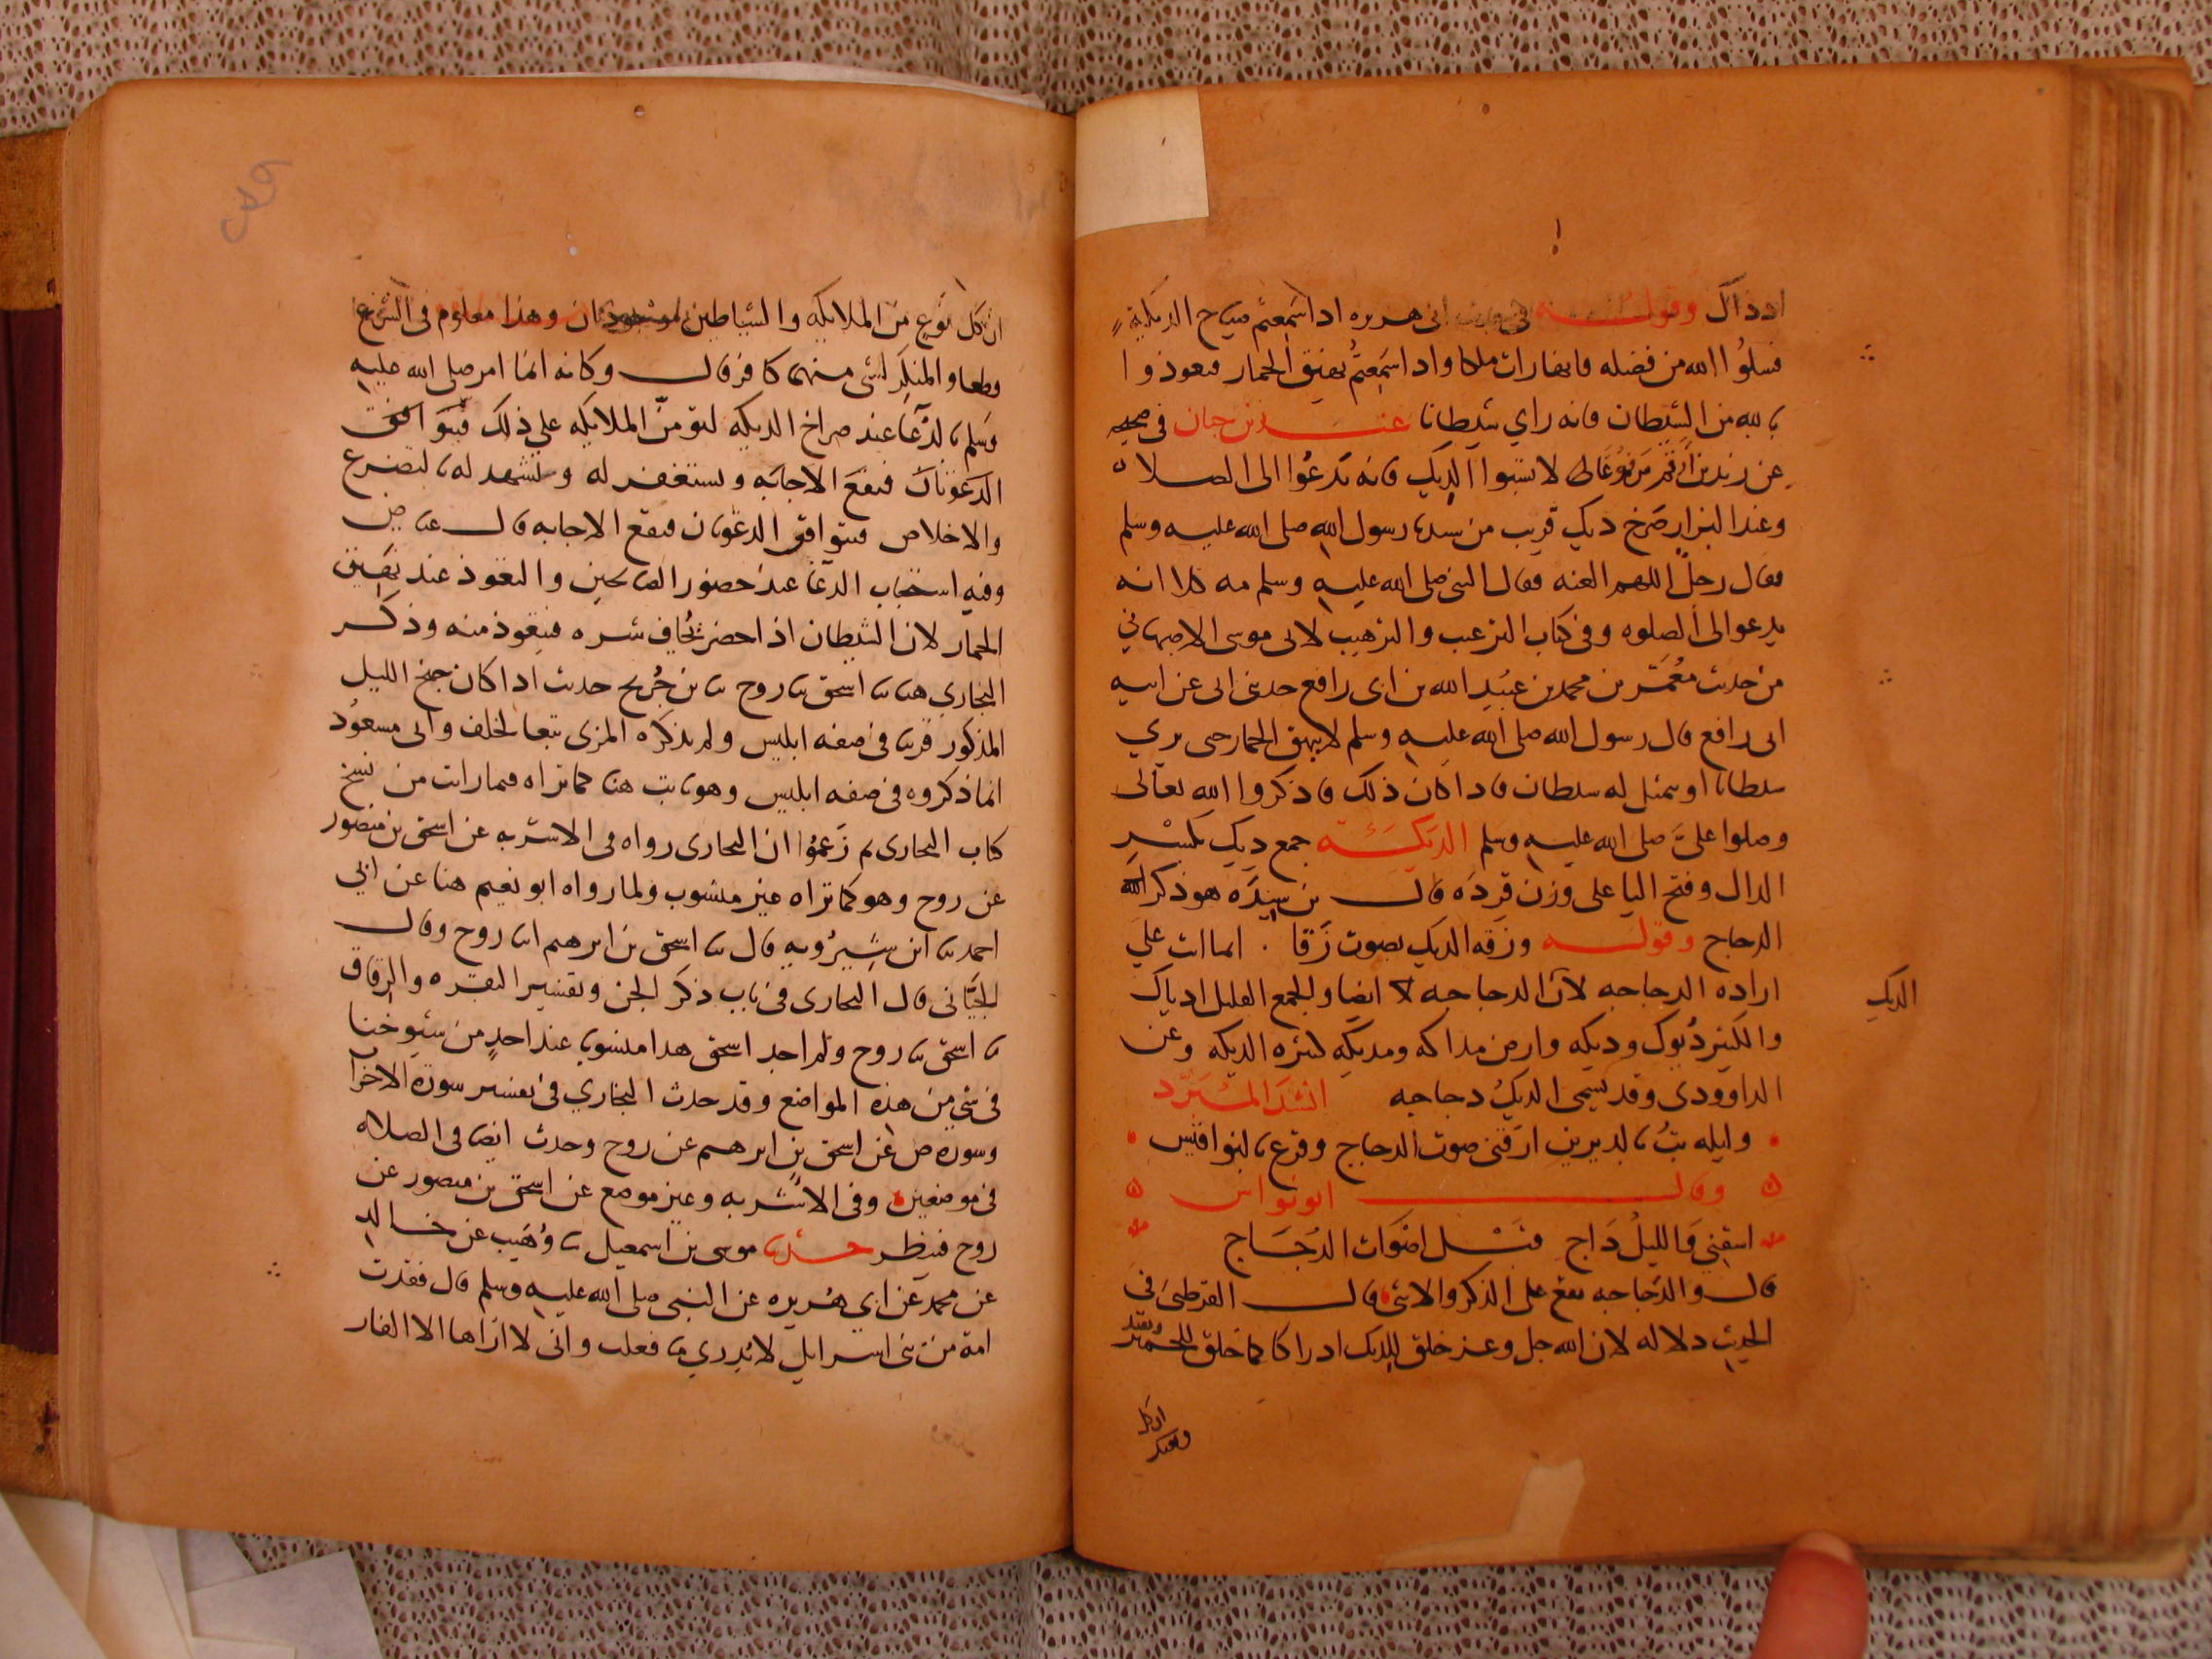 اذ ذاك وقوله في حديث ابي هريره اذا سمعتم صياح الديكة
فسلوا الله من فضله فانها رات ملكا واذا سمعتم نهيق الحمار فتعوذوا
بالله من الشيطان فانه راي شيطانا عند بن حبان في صحيحه
عن زيد بن خالد مرفوعا لا تسبوا الديك فانه يدعوا الى الصلاه
وعند البزار صرخ ديك قريب من سيدنا رسول الله صلى الله عليه وسلم
فقال رجل اللهم العنه فقال النبي صلى الله عليه وسلم مه كلا انه
يدعو الى الصلوه وفي كتاب الترغيب والترهيب لابي موسى الاصبهاني
من حديث معمر بن محمد بن عبيد الله بن ابي رافع حدثني ابي عن ابيه
ابي رافع قال رسول الله صلى الله عليه وسلم لا ينهق الحمار حتى يري
شيطانا او يتمثل له شيطان فاذا كان ذلك فاذكروا الله تعالى
وصلوا علي صلى الله عليه وسلم الديكة جمع ديك بكسر
الدال وفتح اليا على وزن قرده قال بن سيده هو ذكر
الدجاج وقوله وزقه الديك بصوت زقا . انما انث علي
اراده الدجاجه لان الدجاجه ايضا والجمع القليل ادياك
والكثير ديوك وديكه وارض مداكه ومديكه كثيره الديكه وعن
الداوودي وقد يسمى الديك دجاجه انشد المبرد
وليله بت بالديرين ارقني صوت الدجاج وقرع بالنواقيس
وقال ابو نواس
اسقني والليل داج قبل اصوات الدجاج
قال والدجاجه تقع على الذكر والانثى قال القرطبي في
الحديث دلاله لان الله جل وعز خلق للديك ادراكا كما خلق للحمير
الديك
ان كل نوع من الملايكه والشياطين موجودان وهذا معلوم في الشرع
قطعا والمنكر لشي منهما كافر قال وكانه انما امر صلى الله عليه
وسلم بالدعا عند صراخ الديكه لتؤمن الملايكه علي ذلك فتتوافق
الدعوتان فتقع الاجابه ويستغفر له وتشهد له بالتضرع
والاخلاص فتتوافق الدعوتان فتقع الاجابه قال عياض
وفيه استحباب الدعا عند حضور الصالحين والتعوذ عند نهيق
الحمار لان الشيطان اذا حضر يخاف شره فيتعوذ منه وذكر
البخاري هنا ثنا اسحق ثنا روح ثنا بن جريح حديث اذا كان جنح الليل
المذكور قريبا في صفه ابليس ولم يذكره المزي تبعا لخلف وابي مسعود
انما ذكروه في صفه ابليس وهو ثابت هنا كما تراه فيما رايت من نسخ
كتاب البخاري ثم زعموا ان البخاري رواه في الاشربه عن اسحق بن منصور
عن روح وهو كما تراه غير منسوب ولما رواه ابو نعيم هنا عن ابي
احمد ثنا ابن شيرويه قال ثنا اسحق بن ابرهيم انا روح وقال
الجياني قال البخاري في باب ذكر الجن وتفسير البقره والرقاق
ثنا اسحق ثنا روح ولم اجد اسحق هذا منسوبا عند احد من شيوخنا
في شي من هذه المواضع وقد حدث البخاري في تفسير سورة الاحزاب
وسورة ص عن اسحق بن ابرهيم عن روح وحدث ايضا في الصلاه
في موضعين وفي الاشربه وغير موضع عن اسحق بن منصور عن
روح فينظر حدثنا موسى بن اسمعيل ثنا وهيب عن خالد
عن محمد عن ابي هريره عن النبي صلى الله عليه وسلم قال فقدت
امة من بني اسرايل لا يدري ما فعلت واني لا اراها الا الفار